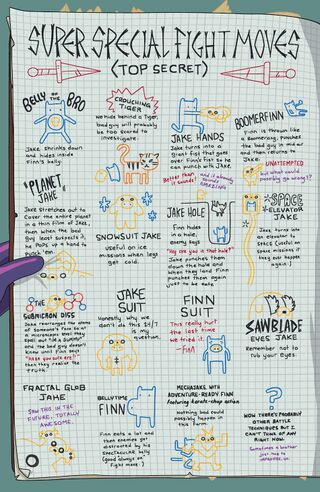 SUPER SPECIAL FIGHT MOVES
(TOP SECRET)
BELLY OF THE BRO
Jake shrinks down
and hides inside
Finn's belly.
CROUCHING
TIGER
We hide behind a Tiger,
bad guy will probably
be too scared to
investigate.
JAKE HANDS
Jake turns into a
Great fist that goes
over Finn's fist so he
can punch with Jake.
Better than
it sounds!
and it already sounds
AMAZING
BOOMERFINN
Finn is thrown like
a Boomerang, punches
the bad guy in mid air
and then returns to
Jake.
UNATTEMPTED
but what could
possibly go wrong??
PLANET
JAKE
Jake stretches out to
cover the entire planet
in a thin film of Jake,
then when the bad
guy least suspects it,
he pops up a hand to
punch 'em
SNOWSUIT JAKE
Useful on ice
missions when legs
get cold.
JAKE HOLE
Finn hides
in a hole,
enemy says
"Hey are you in that hole?"
Jake punches them
down the hole and
when they land Finn
punches them again
just to be safe
SPACE
ELEVATOR
JAKE
Jake turns into
an elevator to
space (useful on
space missions if
they ever happen
again.)
THE
SUBMICRON DISS
Jake rearranges the atoms
of someone's face so at
a microscopic level they
spell out "I'm a dummy"
and the bad guy doesn't
know until Finn says
then they realize the
truth.
JAKE
SUIT
Honestly why we
can't do this 24/7
is my
question.
FINN
SUIT
This really hurt
the last time
we tried it.
-Finn
SAWBLADE
EYES JAKE
Remember not to
rub your eyes
FRACTAL GLOB
JAKE
SAW THIS IN THE
FUTURE, TOTALLY
AWESOME
BELLYTIME
FINN
Finn eats a lot and
then enemies get
distracted by his
SPECTACULAR belly
(Good always on
fight movie.)
MECHAJAKE WITH
ADVENTURE-READY FINN
featuring karate-chop action
Nothing bad could
possibly happen in
this form.
?
NOW THERE'S PROBABLY
OTHER BATTLE
TECHNIQUES BUT I
CAN'T THINK OF ANY
RIGHT NOW.
Sometimes a brother
just has to